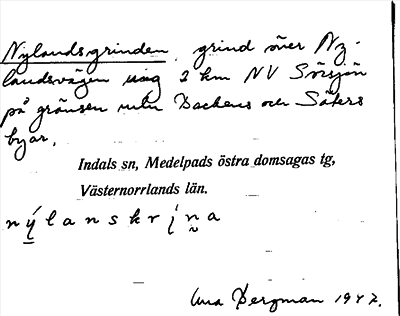 Nylandsgrinden, grind över Ny-
landsvägen ung 2 km NV Sörsjön
på gränsen mln Backens och Säters
byar.
Indals sn, Medelpads östra domsagas tg,
Västernorrlands län.
nýlanskrína
Bergman 1947.